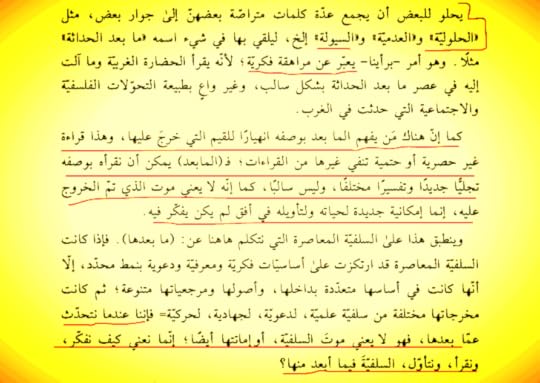 يحلو للبعض أن يجمع عدّة كلمات متراصّة بعضهنّ إلى جوار بعض، مثل
«الحلوليّة» و«العدميّة» و«السيولة» إلخ، ليلقي بها في شيء اسمه «ما بعد الحداثة»
مثلًا. وهو أمر -برأينا- يعبّر عن مراهقة فكريّة؛ لأنّه يقرأ الحضارة الغربيّة وما آلت
إليه في عصر ما بعد الحداثة بشكل سالب، وغير واعٍ بطبيعة التحوّلات الفلسفيّة
والاجتماعية التي حدثت في الغرب.
كما إنّ هناك مَن يفهم الما بعد بوصفه انهيارًا للقيم التي خرجَ عليها، وهذا قراءة
غير حصرية أو حتمية تنفي غيرها من القراءات؛ فـ(المابعد) يمكن أن نقرأه بوصفه
تجليًّا جديدًا وتفسيرًا مختلفًا، وليس سالبًا، كما إنّه لا يعني موت الذي تمّ الخروج
عليه، إنما إمكانية جديدة لحياته ولتأويله في أفق لم يكن يفكّر فيه.
وينطبق هذا على السلفيّة المعاصرة التي نتكلم هاهنا عن: (ما بعدها). فإذا كانت
السلفيّة المعاصرة قد ارتكزت على أساسيّات فكريّة ومعرفيّة ودعوية بنمط محدّد، إلّا
أنّها كانت في أساسها متعدّدة بداخلها، وأصولها ومرجعياتها متنوعة؛ ثم كانت
مخرجاتها مختلفة من سلفية علميّة، لدعويّة، لجهادية، لحركيّة= فإننا عندما نتحدّث
عمّا بعدها، فهو لا يعني موتَ السلفيّة، أو إماتتها أيضًا؛ إنّما نعني كيف نفكّر،
ونقرأ، ونتأوّل، السلفيّةَ فيما أبعد منها؟